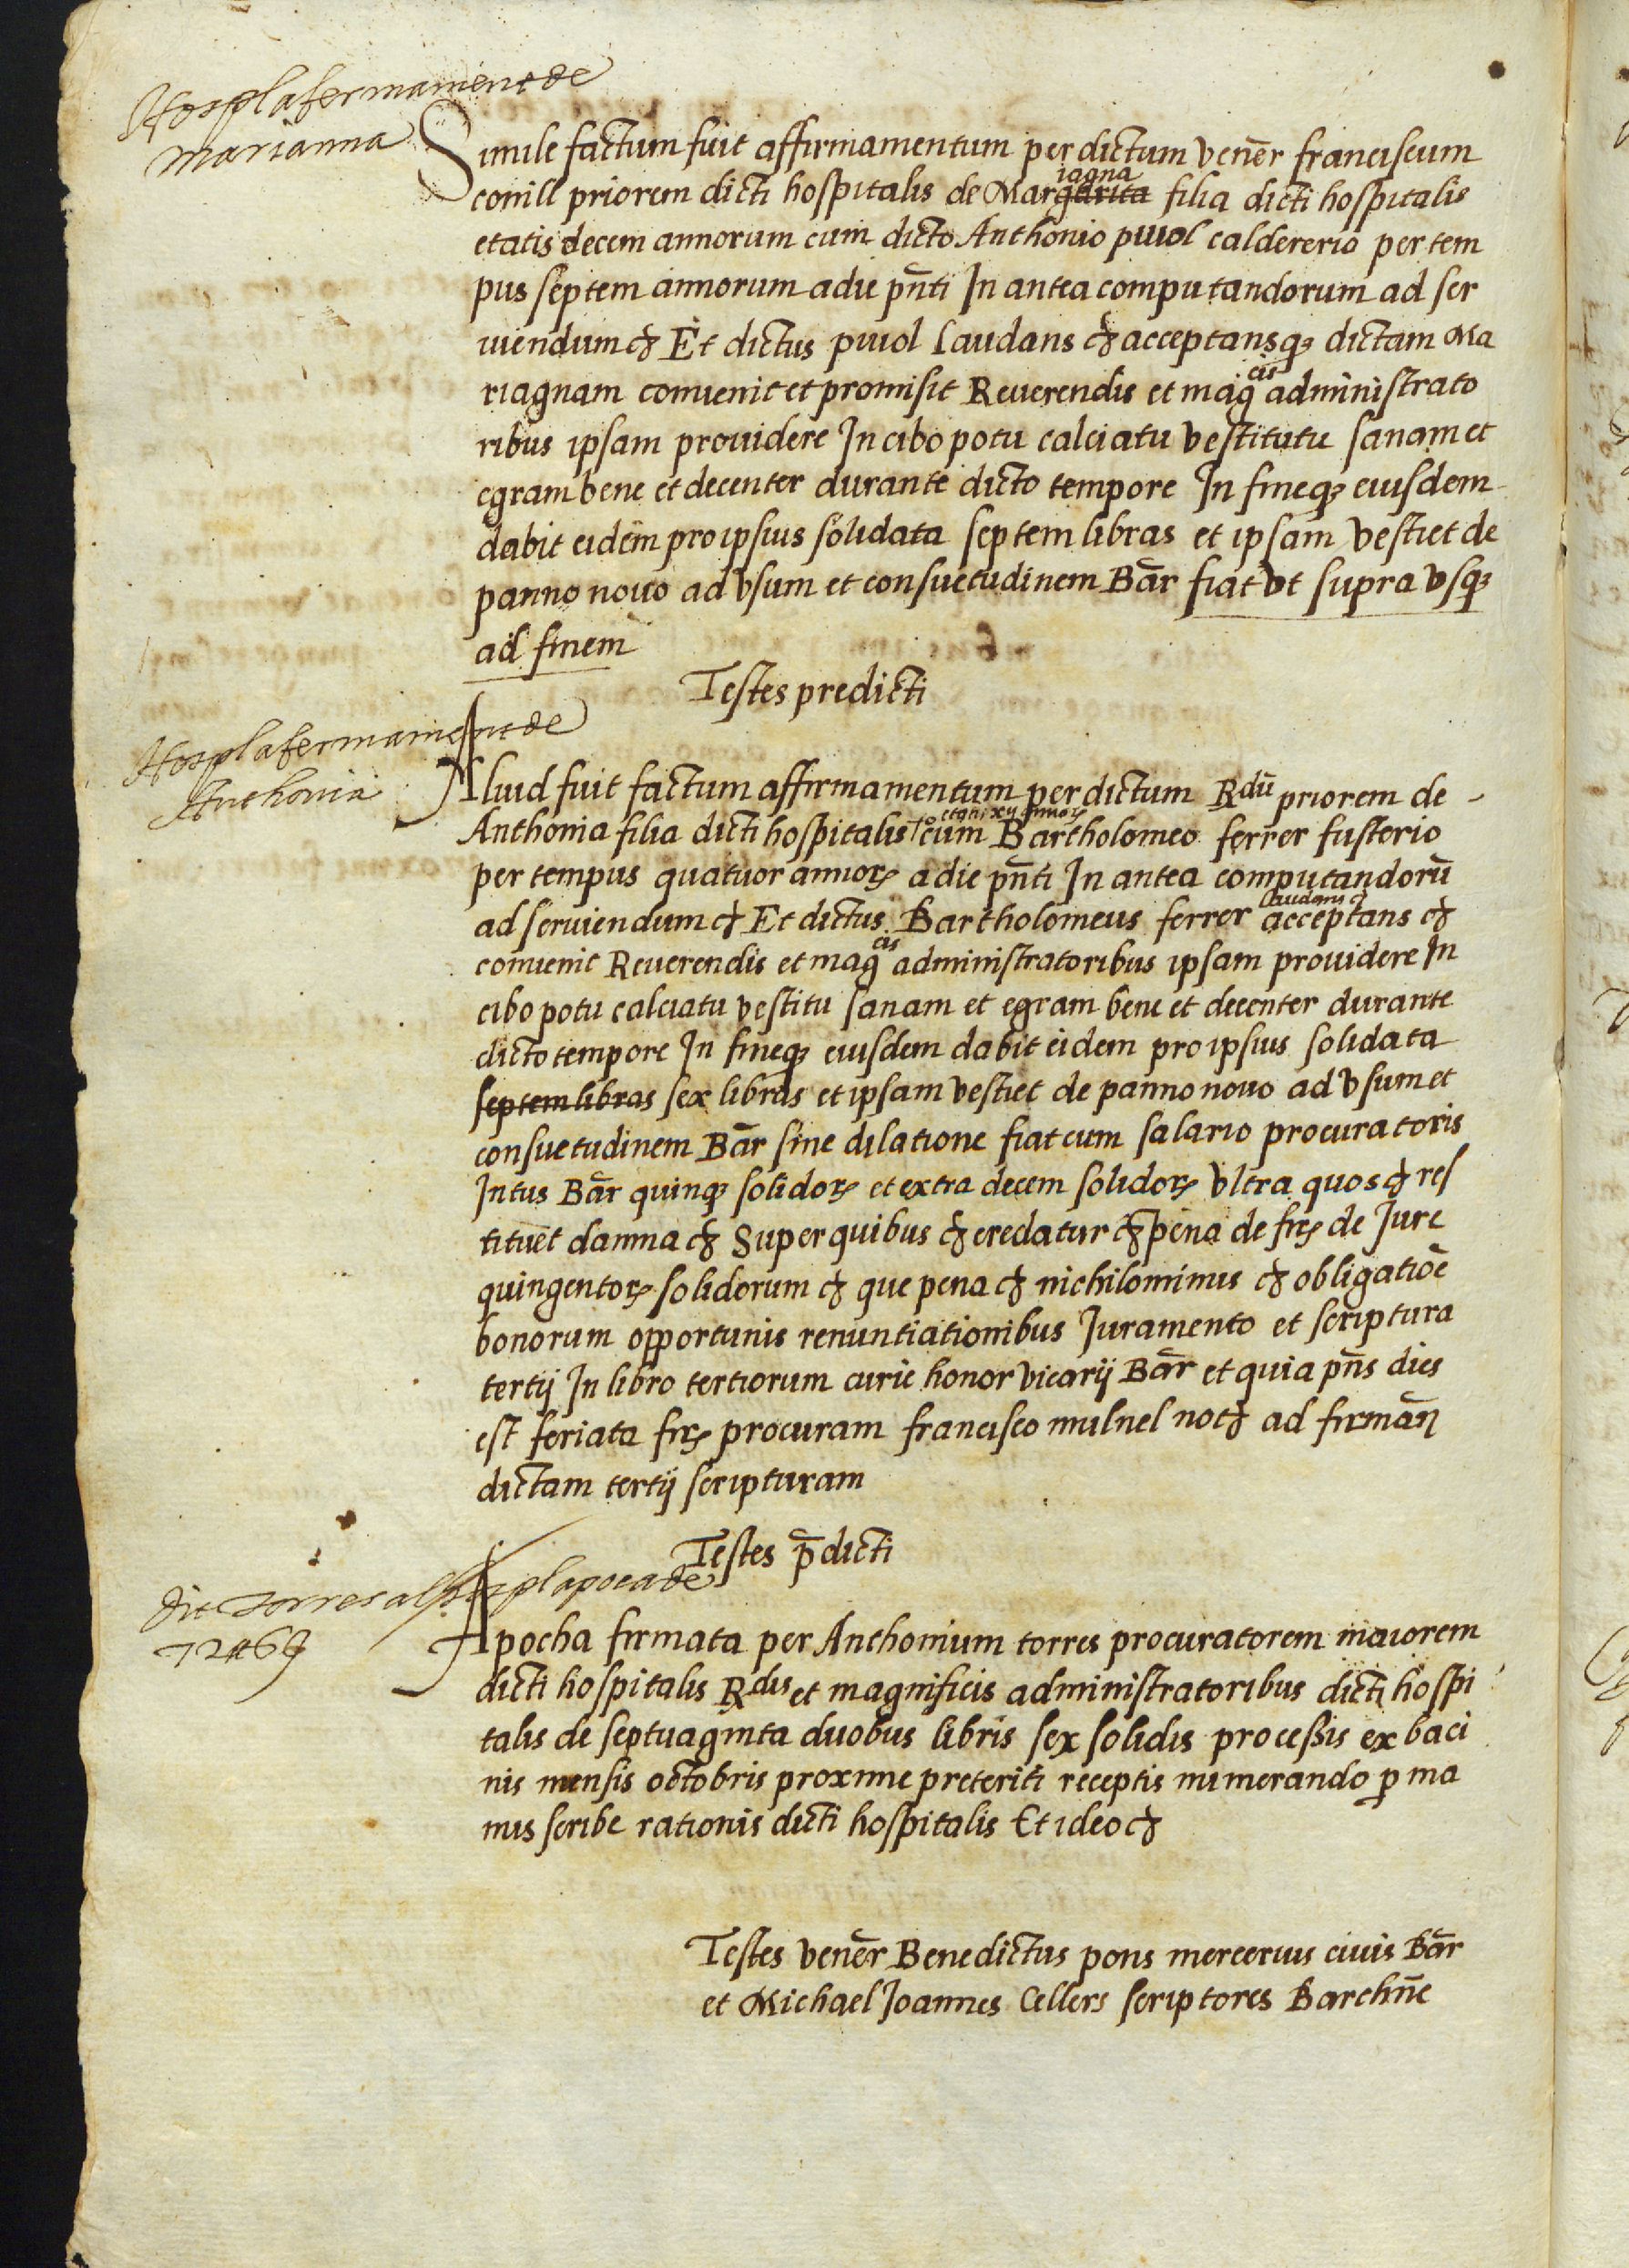 Hospl afermament de
Marianna
Simile factum fuit affirmamentum per dictum venēr franciscum
conill priorem dicti hospitalis de Margarita iagna filia dicti hospitalis
etatis decem annorum cum dicto Anthonio puiol caldererio per tem
pus septem annorum a die pn̄ti In antea computandorum ad ser
uiendum &c Et dictus puiol Laudans &c acceptansq3 dictam Ma
riagnam conuenit et promisit Reuerendis et mag cis administrato
ribus ipsam prouidere In cibo potu calciatu vestitutu sanam et
egram bene et decenter durante dicto tempore In fineq3 eiusdem
dabit eidem pro ipsius solidata septem libras et ipsam vestiet de
panno nouo ad vsum et consuetudinem Bār fiat vt supra vsq3
ad finem
Testes predicti
Hospl afermament de
Anthonia
Aliud fuit factum affirmamentum per dictum Rdū priorem de
Anthonia filia dicti hospitalis etatis xij annorꝝ cum Bartholomeo ferrer fusterio
per tempus quatuor annorꝝ a die pn̄ti In antea computandorū
ad seruiendum &c Et dictus Bartholomeus ferrer laudans &c acceptans &c
conuenit Reuerendis et mag cis administratoribus ipsam prouidere In
cibo potu calciatu vestitu sanam et egram bene et decenter durante
dicto tempore In fineq3 eiusdem dabit eidem pro ipsius solidata
septem libras sex libras et ipsam vestiet de panno nouo ad vsum et
consuetudinem Bār sine dilatione fiat cum salario procuratoris
Intus Bār quinq3 solidorꝝ et extra decem solidorꝝ vltra quos &c res
tituet damna &c Super quibus &c credatur &c pena de firꝝ de Jure
quingentorꝝ solidorum &c que pena &c nichilominus &c obligatiōe
bonorum opportunis renuntiationibus Juramento et scriptura
tertij In libro tertiorum curie honor vicarij Bār et quia pn̄s dies
est feriata firꝝ procuram francisco mulnel not &c ad firmān
dictam tertij scripturam
Testes p̄dicti
hospl apoca de
Apocha firmata per Anthonium torres procuratorem maiorem
dicti hospitalis Rdis et magnificis administratoribus dicti hospi
talis de septuaginta duobus libris sex solidis processis ex baci
nis mensis octobris proxime preteriti receptis numerando ꝑ ma
nus scribe rationis dicti hospitalis Et ideo &c
Testes venēr Benedictus pons mercerius ciuis Bār
et Michael Joannes Cellers scriptores Barchn̄e